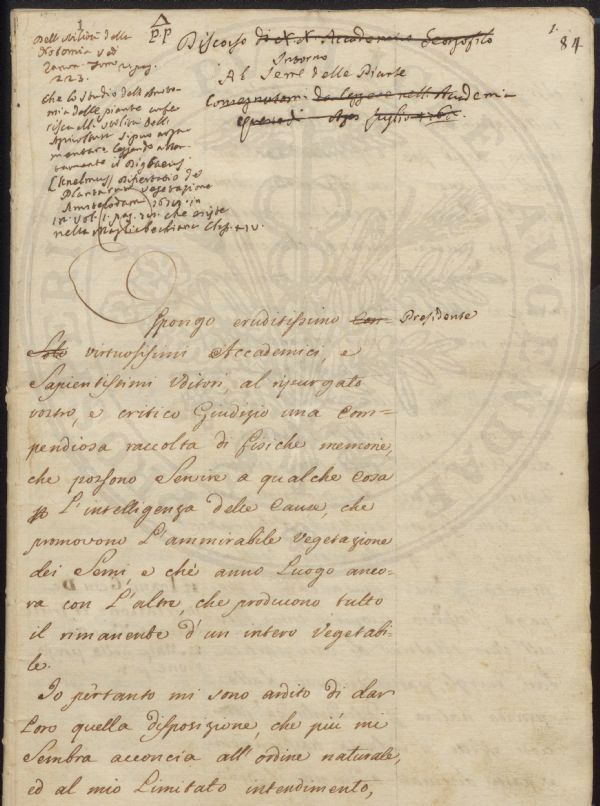 1
Dell'utilità della
Notomia vedi
223.
che lo studio dell'Anato-
mia delle piante confe-
risca all'utilità dell'
Agricoltura si può argu-
mentare leggendo atten-
tamente il Digbaeus
Dissertatio de
Plantarum vegetatione
in
in vol. 1. pag. che esiste
nella Magliabechiana
PP
Discorso di N. N. Accademico Georgofilo
Intorno
Al Seme delle Piante
da leggere nell'Accademia
1.
84
Espongo eruditissimo Presidente
virtuosissimi Accademici, e
Sapientissimi Uditori, al ripurgato
vostro, e critico Giudizio una Com-
pendiosa raccolta di fisiche memorie,
che possono Servire a qualche Cosa
L'intelligenza delle Cause, che
promovono L'ammirabile Vegetazione
dei Semi, e che anno Luogo anco-
ra con L'altre, che producono tutto
il rimanente d'un intero Vegetabi-
le.
Io pertanto mi sono ardito di dar
Loro quella disposizione, che più mi
Sembra acconcia all'ordine naturale,
ed al mio Limitato intendimento,